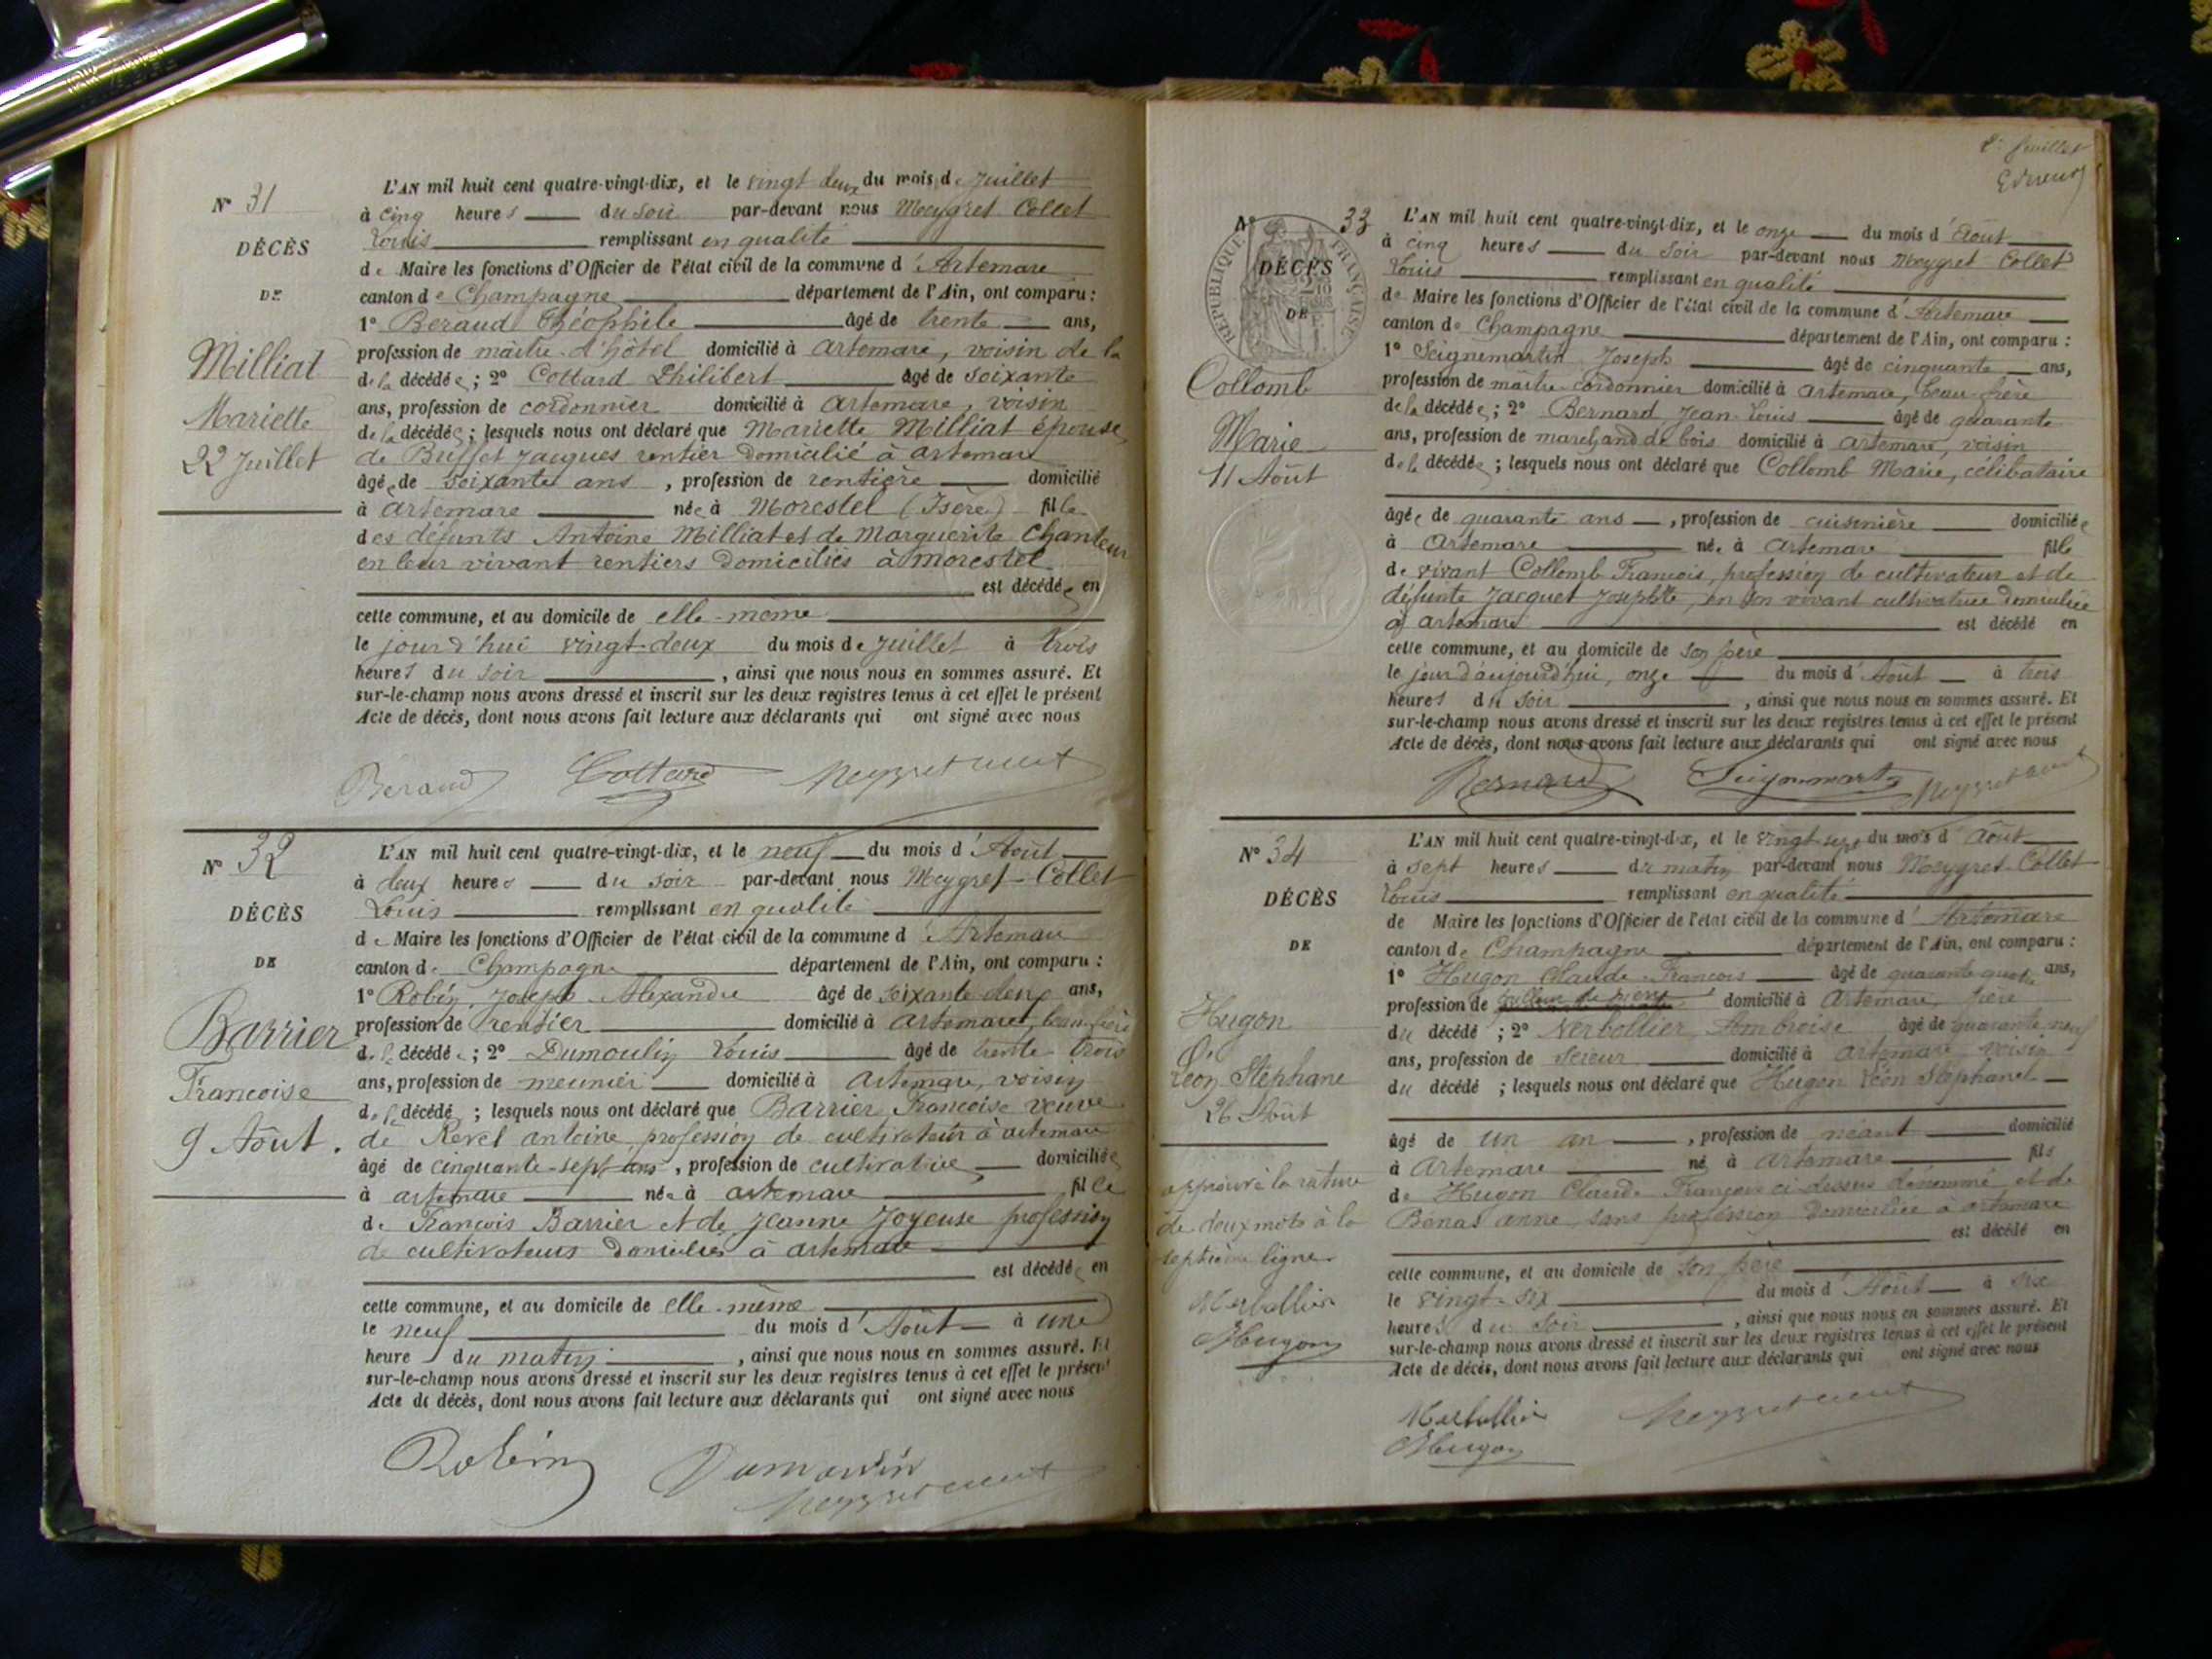 N° 31
DÉCÈS
DE
Milliat
Mariette
22 Juillet
L'AN mil huit cent quatre-vingt-dix, et le vingt deux du mois de Juillet
à cinq heures du soir par-devant nous Meygret-Collet
Louis remplissant en qualité
de Maire les fonctions d'Officier de l'état civil de la commune d'Artemare
canton de Champagne département de l'Ain, ont comparu :
1° Beraud Théophile âgé de trente ans,
profession de maitre-d'hôtel domicilié à artemare, voisin de la
de la décédée ; 2° Cottard Philibert âgé de soixante
ans, profession de cordonnier domicilié à artemare, voisin
de la décédée ; lesquels nous ont déclaré que Mariette Milliat épouse
de Buffet Jacques rentier domicilié à artemare
âgée de soixante ans, profession de rentière domicilié
à artemare née à Morestel (Isère) fille
des défunts Antoine Milliat et de Marguerite Chanteur
en leur vivant rentiers domiciliés à morestel
est décédée en
cette commune, et au domicile de elle-même
le jour d'hui vingt-deux du mois de Juillet à trois
heures du soir, ainsi que nous nous en sommes assuré. Et
sur-le-champ nous avons dressé et inscrit sur les deux registres tenus à cet effet le présent
Acte de décès, dont nous avons fait lecture aux déclarants qui ont signé avec nous
Béraud Cottard
N° 32
DÉCÈS
DE
Barrier
Francoise
9 Août.
L'AN mil huit cent quatre-vingt-dix, et le neuf du mois d'Août
à deux heures du soir par-devant nous Meygret-Collet
Louis remplissant en qualité
de Maire les fonctions d'Officier de l'état civil de la commune d'Artemare
canton de Champagne département de l'Ain, ont comparu :
1° Robin, Joseph-Alexandre âgé de soixante deux ans,
profession de rentier domicilié à artemare, beau-frère
de la décédée ; 2° Dumoulin Louis âgé de trente-trois
ans, profession de meunier domicilié à artemare, voisin
de la décédé ; lesquels nous ont déclaré que Barrier Francoise veuve
de Revel antoine profession de cultivateur à artemare
âgé de cinquante-sept ans, profession de cultivatrice domiciliée
à artemare née à artemare fille
de Francois Barrier et de Jeanne Joyeuse profession
de cultivateurs domiciliés à artemare
est décédée en
cette commune, et au domicile de elle-même
le neuf du mois d'Août à une
heure du matin, ainsi que nous nous en sommes assuré. Et
sur-le-champ nous avons dressé et inscrit sur les deux registres tenus à cet effet le présent
Acte de décès, dont nous avons fait lecture aux déclarants qui ont signé avec nous
Robin Dumoulin
2e feuillet
N° 33
RÉPUBLIQUE FRANÇAISE
DÉCÈS
DE
Collomb
Marie
11 Août
L'AN mil huit cent quatre-vingt-dix, et le onze du mois d'Août
à cinq heures du soir par-devant nous Meygret-Collet
Louis remplissant en qualité
de Maire les fonctions d'Officier de l'état civil de la commune d'Artemare
canton de Champagne département de l'Ain, ont comparu :
1° Seignemartin Joseph âgé de cinquante ans,
profession de maitre-cordonnier domicilié à artemare, beau-frère
de la décédée ; 2° Bernard Jean-Louis âgé de quarante
ans, profession de marchand de bois domicilié à artemare, voisin
de la décédée ; lesquels nous ont déclaré que Collomb Marie, célibataire
âgée de quarante ans, profession de cuisinière domiciliée
à Artemare née à artemare fille
de vivant Collomb Francois, profession de cultivateur et de
défunte Jacquet Josephte, en son vivant cultivatrice domiciliée
à artemare est décédé en
cette commune, et au domicile de son père
le jour d'aujourd'hui, onze du mois d'Août à trois
heures du soir, ainsi que nous nous en sommes assuré. Et
sur-le-champ nous avons dressé et inscrit sur les deux registres tenus à cet effet le présent
Acte de décès, dont nous avons fait lecture aux déclarants qui ont signé avec nous
Bernard Seignemartin
N° 34
DÉCÈS
DE
Hugon
Léon Stéphane
26 Août
approuvé la rature
de deux mots à la
septième ligne
Nerbollier
Hugon
L'AN mil huit cent quatre-vingt-dix, et le vingt-sept du mois d'Août
à sept heures du matin par-devant nous Meygret-Collet
Louis remplissant en qualité
de Maire les fonctions d'Officier de l'état civil de la commune d'Artemare
canton de Champagne département de l'Ain, ont comparu :
1° Hugon Claude-Francois âgé de quarante quatre ans,
profession de domicilié à Artemare, père
du décédé ; 2° Nerbollier, Ambroise âgé de quarante neuf
ans, profession de scieur domicilié à artemare, voisin
du décédé ; lesquels nous ont déclaré que Hugon Léon Stéphane
âgé de un an, profession de néant domicilié
à Artemare né à artemare fils
de Hugon Claude François ci-dessus dénommé et de
Bonas anne, sans profession domiciliée à artemare
est décédé en
cette commune, et au domicile de son père
le vingt-six du mois d'Août à six
heures du soir, ainsi que nous nous en sommes assuré. Et
sur-le-champ nous avons dressé et inscrit sur les deux registres tenus à cet effet le présent
Acte de décès, dont nous avons fait lecture aux déclarants qui ont signé avec nous
Nerbollier
Hugon